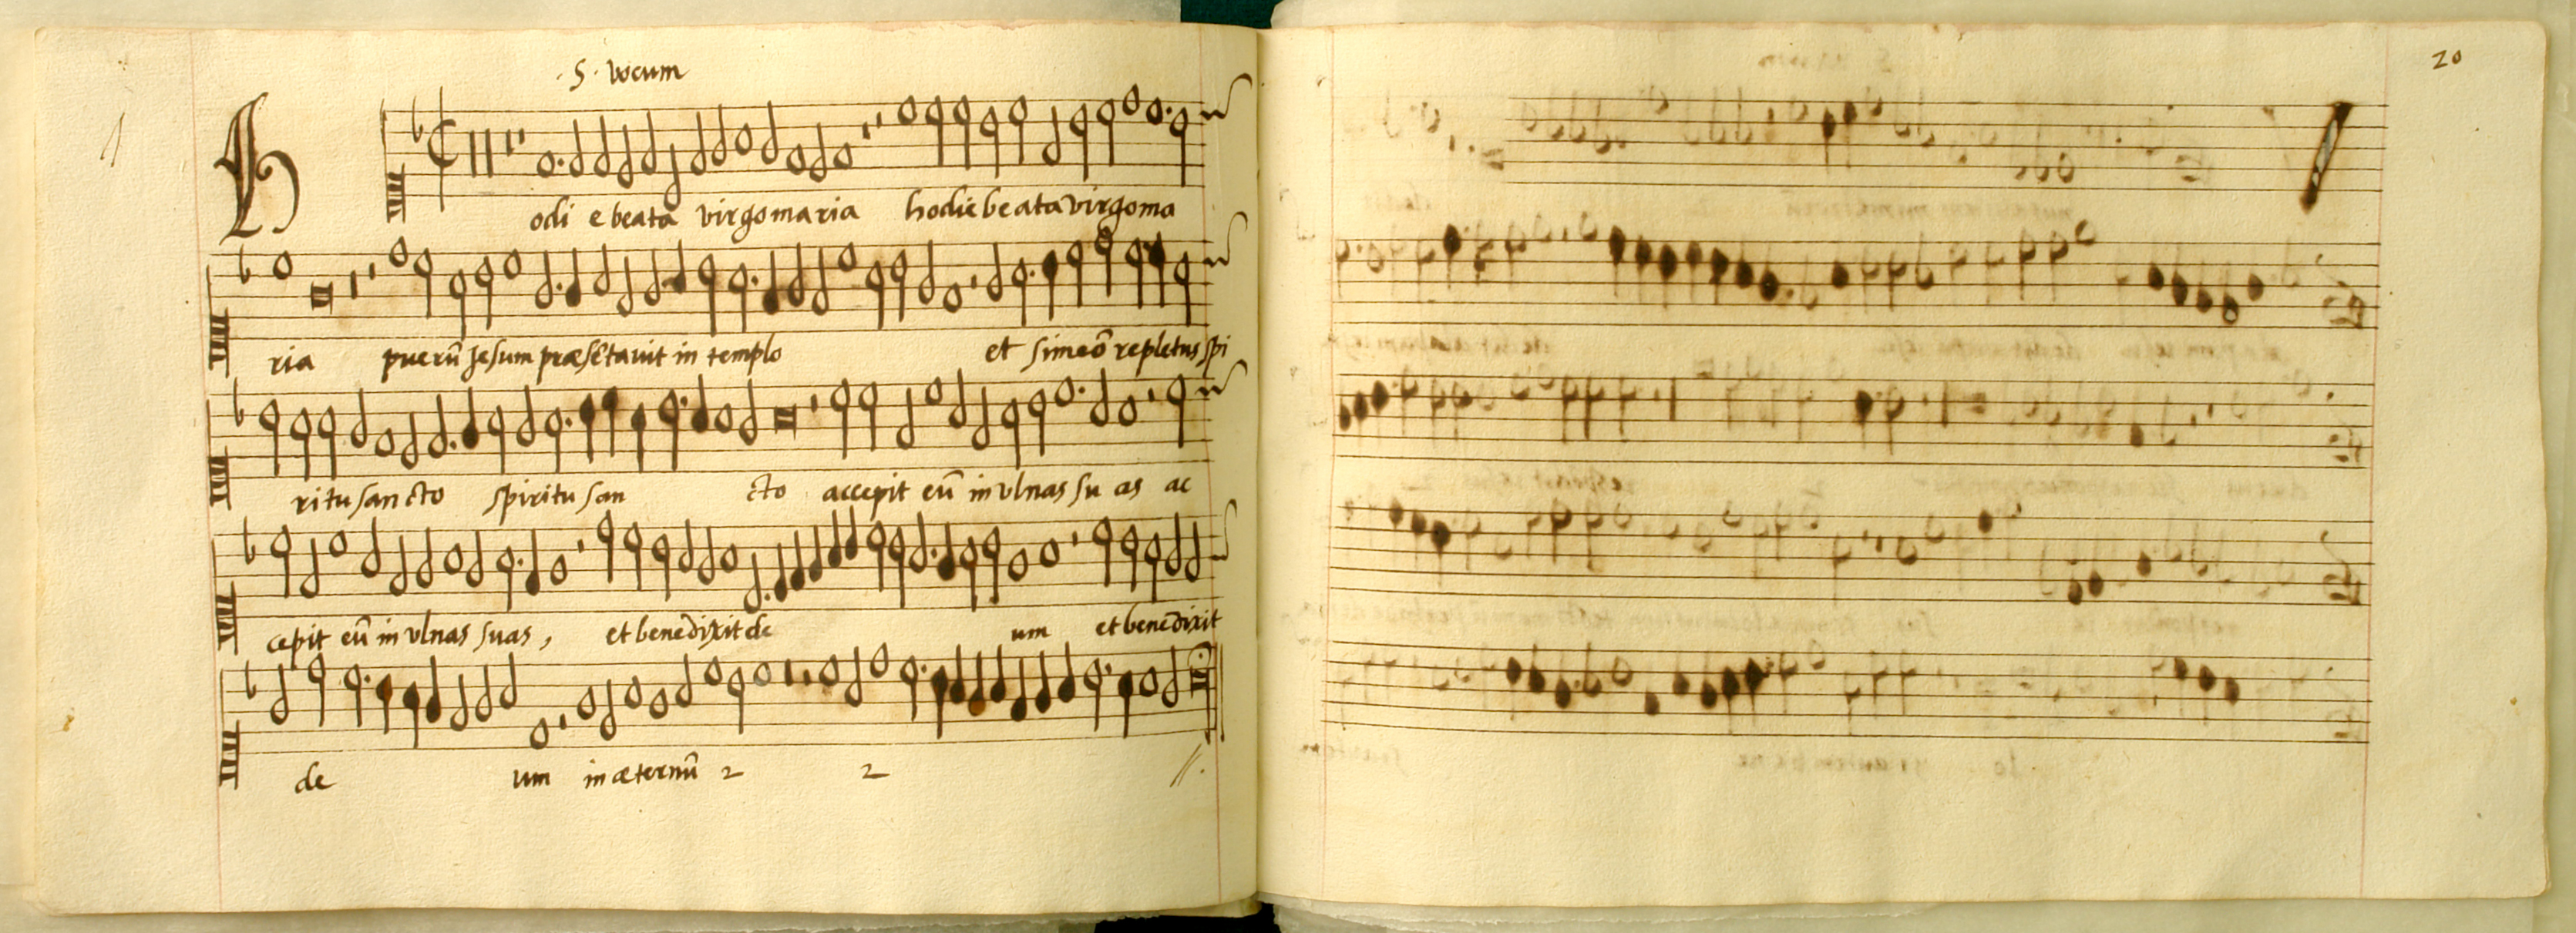 ·5· vocum
Hodi e beata virgo maria hodie beata virgo ma
ria puerū Jesum præsētavit in templo et simeō repletus spi
ritu sancto spiritu san cto accepit eū in vlnas su as ac
cepit eū in vlnas suas, et benedixit de um et benedixit
de um in æternū 2 2 //.
20